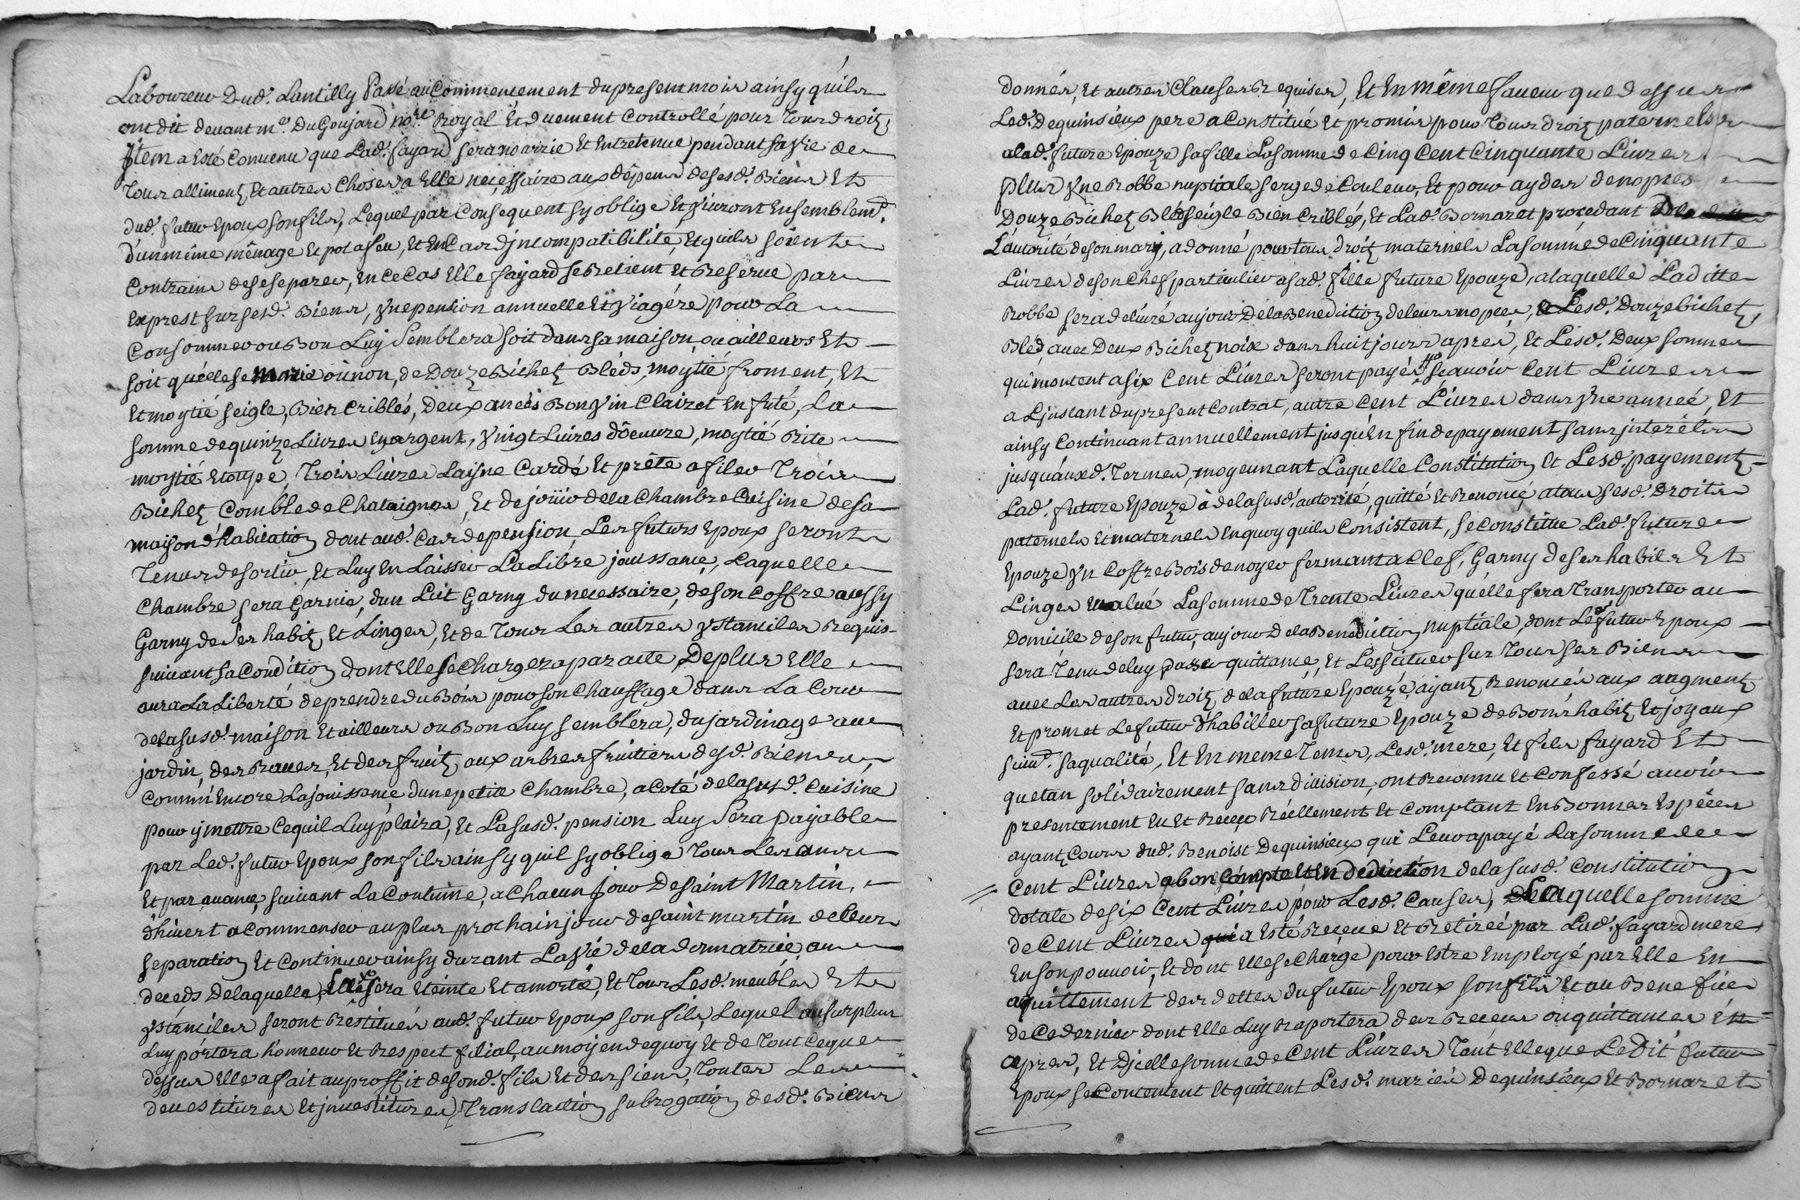 Laboureur Dud. Lantilly Passé au Commencement du present mois ainsy quils
ont dit devant me. DuGoujard nore. Royal Et duement Controllé pour Tous droitz,
Jtem a Esté Convenu que Lad. fayard sera nourrie Et Entretenue pendant sa vie de
Tous allimentz Et autres Choses a Elle necessaire aux dépens de sesd. Biens Et
dud. futur Epoux son fils, Lequel par Consequent sy oblige Et Vivront Ensemblemt.
d'un même ménage Et pot a feu, Et En Cas djncompatibilité, Et quils soient
Contrains de se separer, En ce Cas Elle fayard se Retient Et Reserve par
Exprest sur sesd. Biens, Vne pention annuelle Et Viagére pour La
Consommer ou Bon Luy Semblera soit dans sa maison, ou ailleurs Et
soit qu'elle se marie ou non, de Douze Bichetz Bléds, moytié froment, Et
Et moytié seigle, Bien Criblés, Deux aneés Bon Vin Clairet En futé, La
somme de quinze Livres En argent, Vingt Livres d'oeuvre, moytié Rite
moytié Etoupe, Trois Livres Laisne Cardé Et prête a filer Trois
Bichetz Comble de Chataignes, Et de joüir de la Chambre Cuisine de sa
maison d'habitation dont aud. Cas de pension Les futurs Epoux seront
Tenus de sortir, Et Luy En Laisser La Libre jouissance, Laquelle
Chambre sera Garnie, dun Lit Garny du necessaire, de son Coffre aussy
Garny de Ses habitz Et Linges, Et de Tous Les autres Vstanciles Requis
suivant sa Condition dont Elle se Chargera par acte, De plus Elle
aura La Liberté de prendre du Bois pour son Chauffage dans La Cour
de la susd. maison Et ailleurs ou Bon Luy semblera, du jardinage au
jardin, des Raves, Et des fruitz aux arbres fruitiers desd. Biens
Comm' Encore La jouissance dune petite Chambre, a Coté de la susd. Cuisine
pour y mettre Ce quil Luy plaira, Et La susd. pension Luy Sera payable
par Led. futur Epoux son fils ainsy quil sy oblige Tous Les ans
Et par avance, suivant La Coutume, a Chacun jour De saint Martin,
d'hivert a Commenser au plus prochain jour de saint martin de leur
separation Et Continuer ainsy durant La Vie de la donnatrice, au
decéds De laquelle, sera Eteinte Et amortie, Et Tous Lesd. meubles Et
Vstanciles seront Restitués aud. futur Epoux son fils, Lequel au surplus
Luy portera honneur Et Respect filial, au moyen de quoy Et de Tout Ce que
dessus Elle a fait au proffit de sond. fils Et des siens, Toutes Les
devestitures Et jnvestitures, Translation subrogation desd. Biens
donnés, Et autres Clauses Requises, Et En même faveur que dessus
Led. dequinsieux pere a Constitué Et promis pour Tous droitz paternels
a lad. future Epouze sa fille La somme de Cinq Cent Cinquante Livres
plus Vne Robbe nuptiale serge de Couleur, Et pour ayder de nopces
Douze Bichetz Bléd seigle Bien Criblés, Et Lad. Bornaret procedant de
L'autorité de son mary, a donné pour tous droitz maternels La somme de Cinquante
Livres de son Chef particulier a sad. fille future Epouze, a laquelle Laditte
Robbe sera delivré au jour De la Benediction de leurs nopces, Lesd. Douze bichetz
Bléd, avec Deux Bichetz noix dans huit jours aprés, Et Lesd. Deux sommes
qui montent a six Cent Livres seront payés, sçavoir Cent Livres
a Ljnstant du present Contrat, autre Cent Livres dans Vne anneé, Et
ainsy Continuant annuellement jusqu'En fin de payement sans jnterêts
jusqu'auxd. Termes, moyennant Laquelle Constitution Et Lesd. payementz
Lad. future Epouze à de la susd. autorité, quitté Et Renoncé a tous sesd. Droits
paternels Et maternels En quoy quils Consistent, se Constitue Lad. future
Epouze Vn Coffre Bois de noyer fermant a Clef, Garny de ses habits Et
Linges Evalué La somme de Trente Livres qu'elle fera Transporter au
Domicile de son futur, au jour De la Benediction nuptiale, dont Led. futur Epoux
sera Tenu de luy passer quittance, Et Les situer sur Tous ses Biens
avec Les autres Droitz de la future Epouze, ayantz Renoncés aux augmentz
Et promet Le futur d'habiller sa future Epouze de Bons habitz Et joyaux
suivt. sa qualité, Et En meme Tems, Lesd. mere, Et fils fayard Et
quetan solidairement sans division, ont Reconnu Et Confessé avoir
presentement Eu Et Receu Réellement Et Comptant En Bonnes Espéces
ayantz Cours dud. Benoist Dequinsieux qui Leur a payé La somme de
Cent Livres a bon Compte Et En deduction de la susd. Constitution
dotale de six Cent Livres pour Lesd. Causes, Laquelle somme
de Cent Livres a Esté Receue Et Retireé par Lad. fayard mere
En son pouvoir, Et dont Elle se Charge pour Estre Employé par Elle En
aquittement des dettes du futur Epoux son fils Et au Benefice
de Ce dernier dont Elle Luy Raportera des Receus ou quittances Et
apres, Et Djcelle somme de Cent Livres Tant Elle que Le Dit futur
Epoux se Contentent Et quittent Lesd. mariés Dequinsieux Et Bornaret